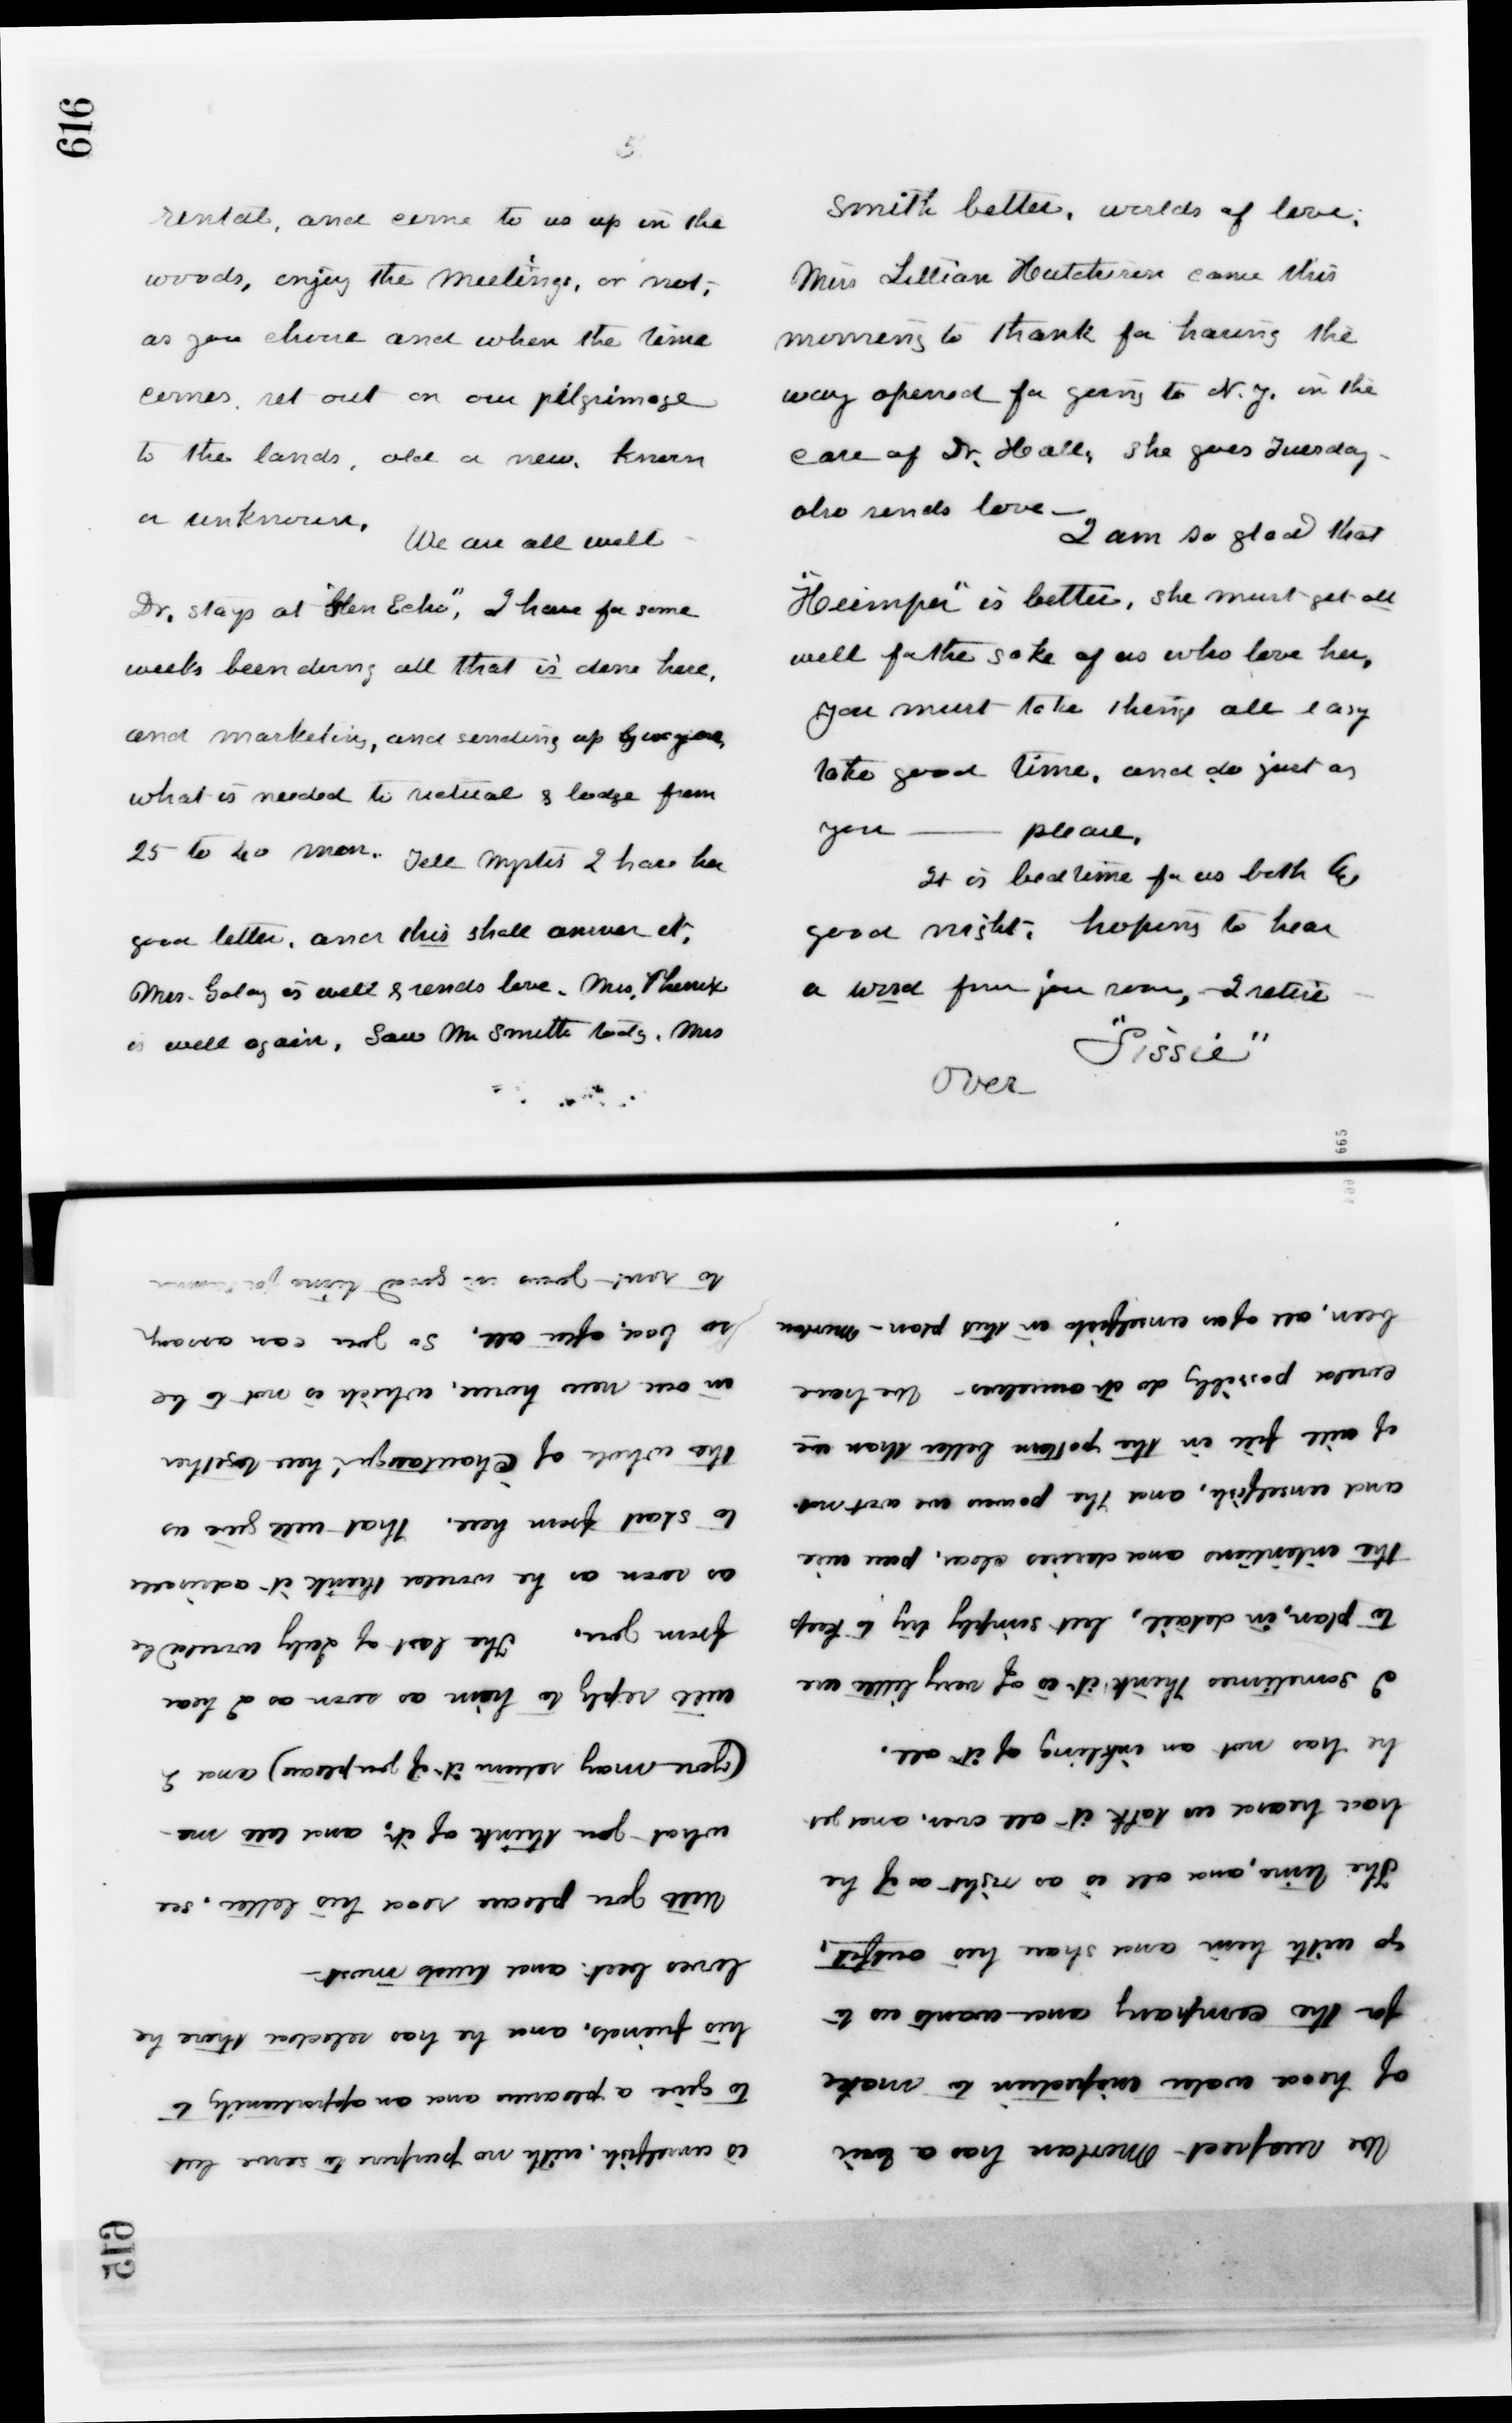 616
5
rental, and come to us up in the
woods, enjoy the meetings, or not,
as you chose and when the time
comes, set out on our pilgrimage
to the lands, old or new, known
or unknown.
We are all well –
Dr. stays at "Glen Echo", I have for some
weeks been doing all that is done here,
and marketing, and sending up
what is needed to victual & lodge from
25 to 40 men. Tell I have her
good letter, and this shall answer it,
Mrs. is well & sends love. Mrs. Phenix
is well again, Saw Mr Smith today. Mrs
Smith better. worlds of love.
Miss Lillian Hutchison came this
morning to thank for having the
way opened for going to N.Y. in the
care of Dr. Hall, she goes Tuesday –
also sends love –
I am so glad that
is better, she must get all
well for the sake of us who love her,
you must take things all easy
take good time, and do just as
you —— please,
It is bedtime for us both &
good night. hoping to hear
a word from you soon, I retire –
"Sissie"
over
665
We suspect Morlan has a
of head water inspection to make
for the company and wants us to
go with him and share his outfit,
the time, and all is as right as if he
had heard us talk it all over, and yet
he has not an inkling of it all.
I sometimes think it is of very little use
to plan, in detail, but simply try to keep
the intentions and desires clear, pure
and unselfish, and the powers we wot not
of will fill in the pattern better than we
could possibly do it ourselves – We have
been, all of us unselfish in this plan – Morlan
is unselfish, with no purpose to serve but
to give a pleasure and an opportunity to
his friends, and he has selected those he
loves best and trusts most –
Will you please read his letter, see
what you think of it, and tell me –
(you may return it if you please) and I
will reply to him as soon as I hear
from you. The last of July would be
as soon as he would think it advisable
to start from here. That will give us
the whole of Chautauqua here together
in our new home, which is not to be
so bad, after all, so you can assay
to rent yours in good time for summer
615